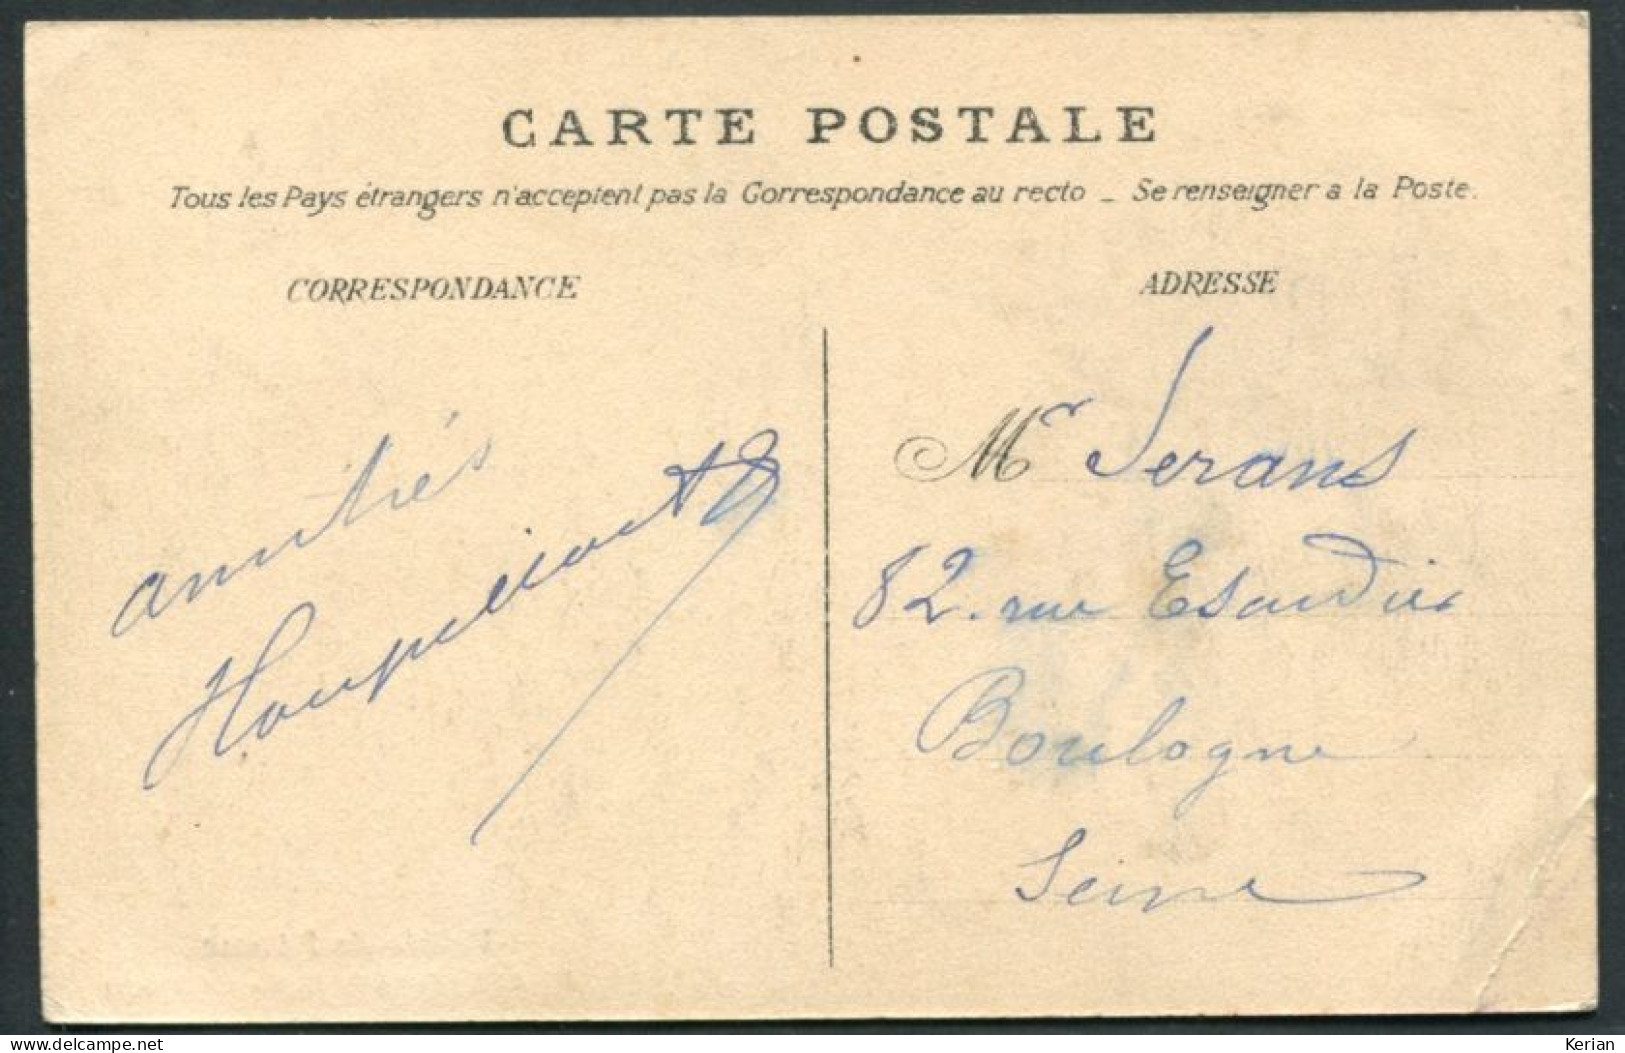 CARTE POSTALE
Tous les Pays étrangers n'acceptent pas la Correspondance au recto _ Se renseigner a la Poste.
CORRESPONDANCE
ADRESSE
amitiés
Mr Serans
82. rue Escudier
Boulogne
Seine
delcampe.net
Kerian